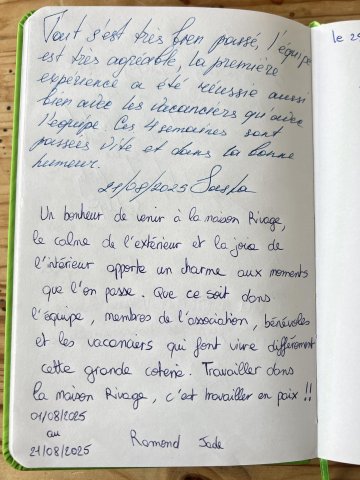 Tout s'est très bien passé, l'équipe
est très agréable, la première
expérience a été réussie aussi
bien avec les vacanciers qu'avec
l'équipe. Ces 4 semaines sont
passées vite et dans la bonne
humeur.
21/08/2025 Saska
Un bonheur de venir à la maison Rivage,
le calme de l'extérieur et la joie de
l'intérieur apporte un charme aux moments
que l'on passe. Que ce soit dans
l'équipe, membres de l'association, bénévoles
et les vacanciers qui font vivre différement
cette grande coterie. Travailler dans
la maison Rivage, c'est travailler en paix !!
01/08/2025
au
21/08/2025
Romond Jade
le 2